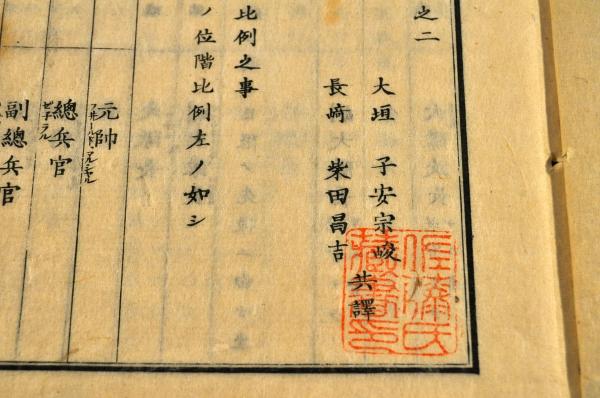 之二
大垣 子安宗峻
長崎 柴田昌吉
共譯
比例之事
ノ位階比例左ノ如シ
元帥
總兵官
ゼネラル
副總兵官